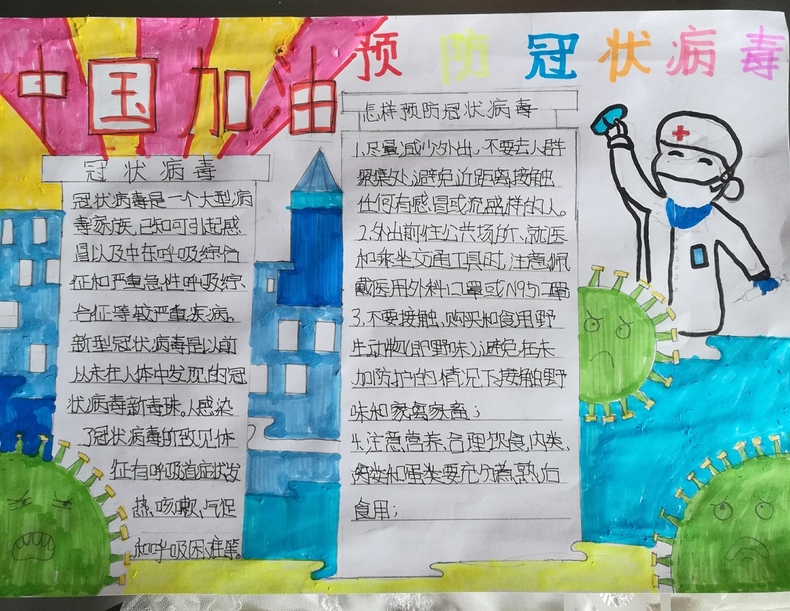 中国加油
预防冠状病毒
冠状病毒
冠状病毒是一个大型病
毒家族,已知可引起感
冒以及中东呼吸综合
征和严重急性呼吸综
合征等较严重疾病。
新型冠状病毒是以前
从未在人体中发现的冠
状病毒新毒珠。人感染
了冠状病毒的致见体
征有呼吸道症状发
热、咳嗽、气促
和呼吸困难等。
怎样预防冠状病毒
1.尽量减少外出,不要去人群
聚集处,避免近距离接触
任何有感冒或流感样的人。
2.外出前往公共场所、就医
和乘坐交通工具时,注意佩
戴医用外科口罩或N95口罩
3.不要接触、购买和食用野
生动物(即野味)避免在未
加防护的情况下接触野
味和家禽家畜;
4.注意营养,合理饮食,肉类、
禽类和蛋类要充分煮熟后
食用;